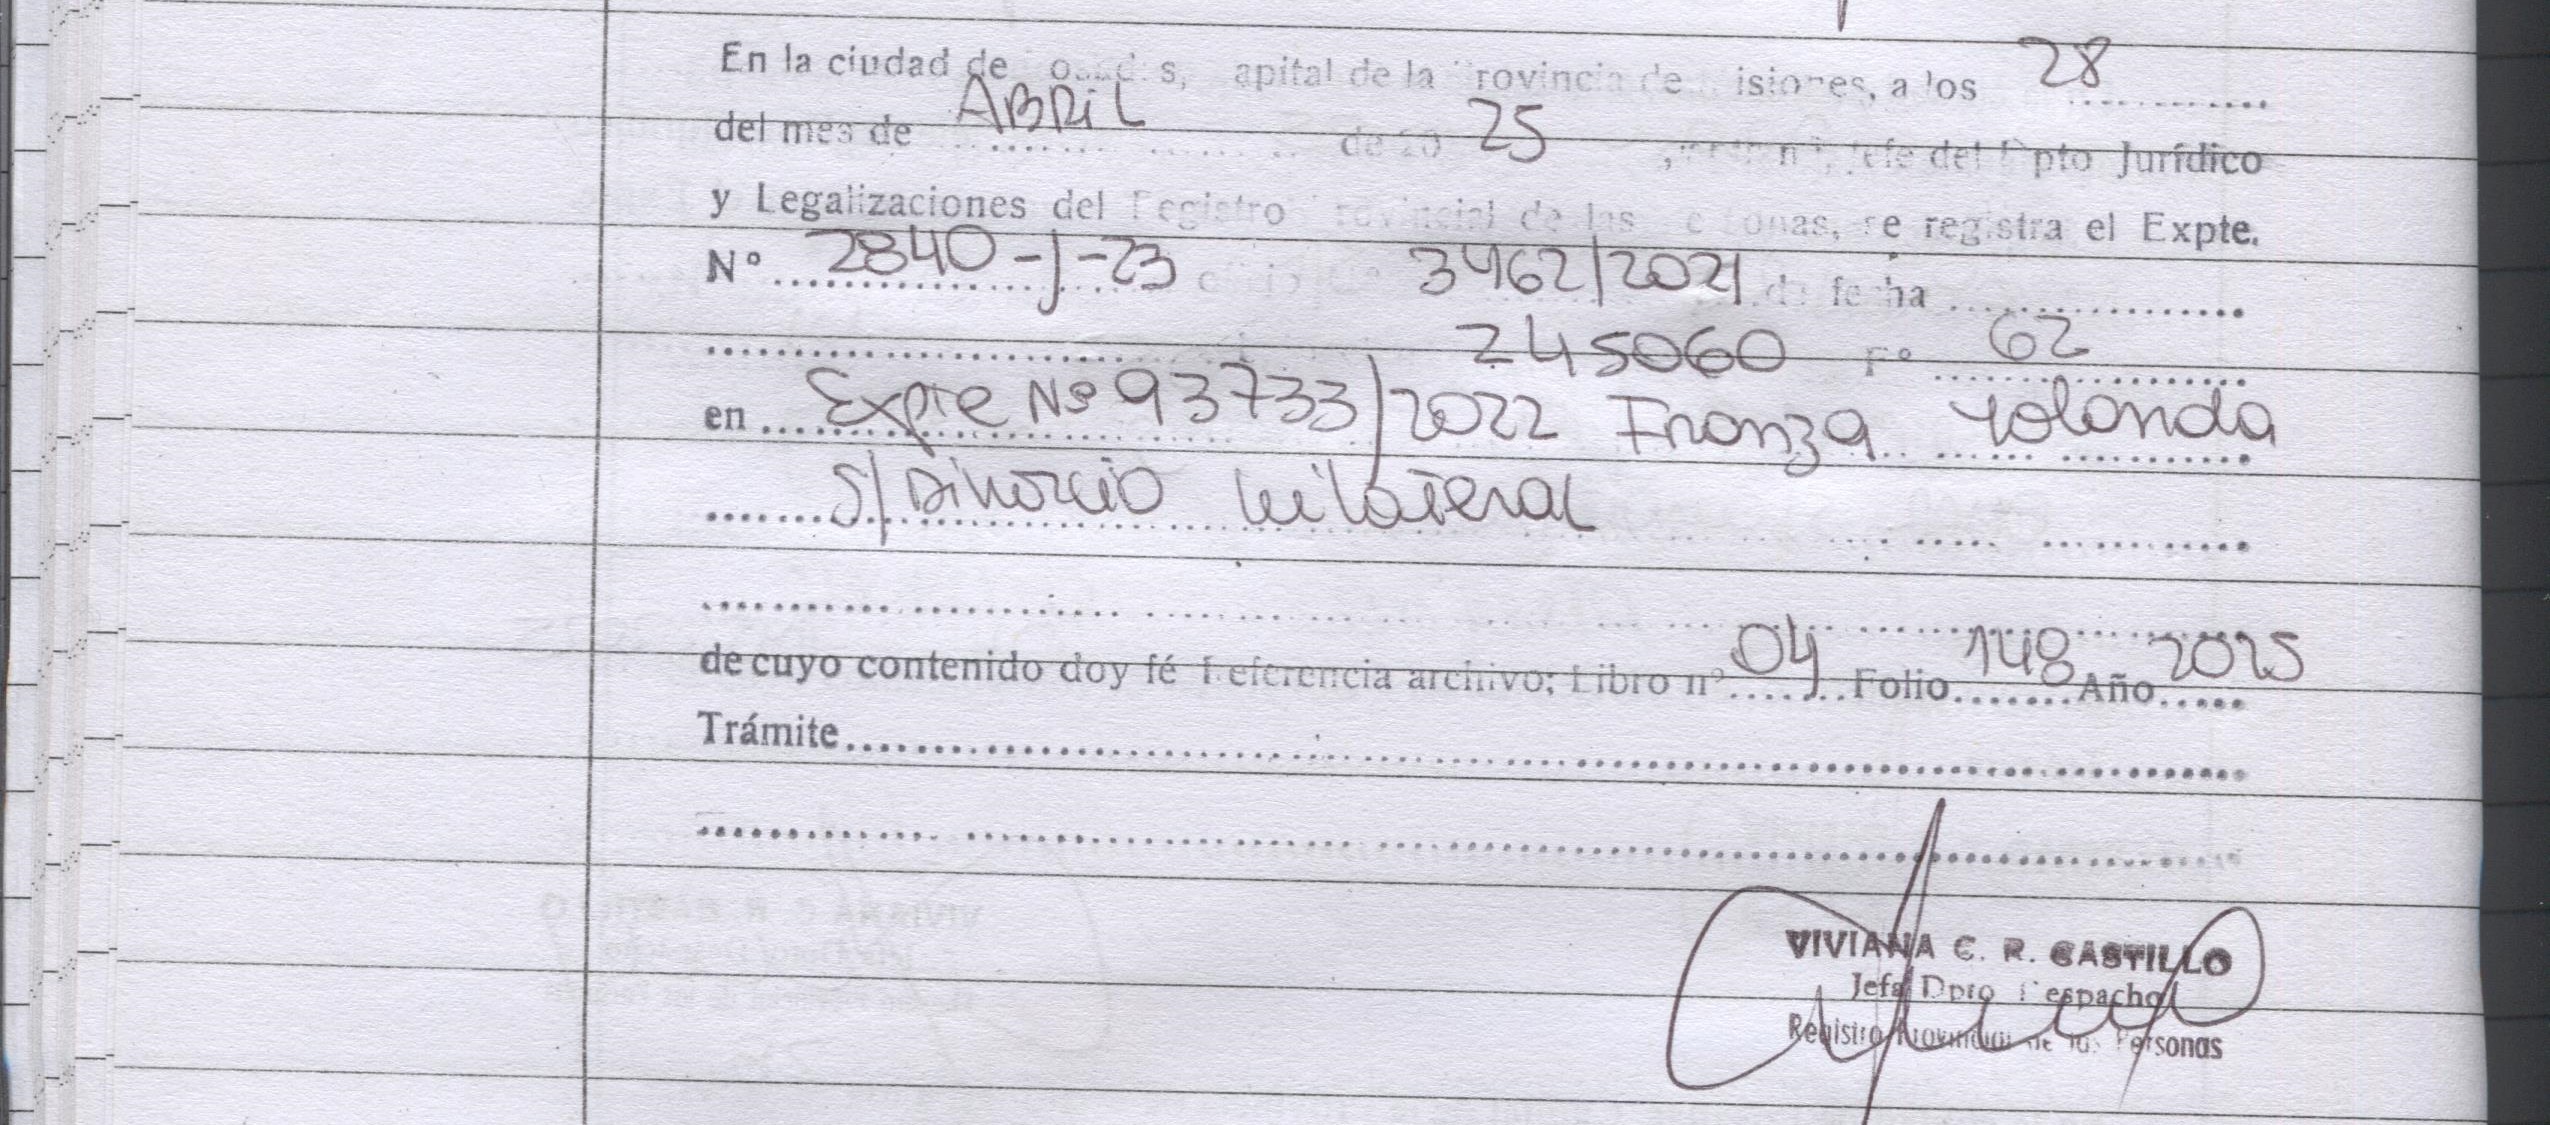 En la ciudad de Posadas, Capital de la Provincia de Misiones, a los 28
del mes de ABRIL de 20 25, Jefe del Dpto Jurídico
y Legalizaciones del Registro Provincial de las Personas, se registra el Expte.
Nº 2840-J-23 oficio Nº 3462/2021 de fecha
245060 Fº 62
en Expte Nº 93733/2022 Fronza Yolanda
S/Divorcio Unilateral
de cuyo contenido doy fé Referencia archivo; Libro nº 04 Folio 148 Año 2025
Trámite
VIVIANA C. R. CASTILLO
Jefa Dpto Despacho
Registro Provincial de las Personas